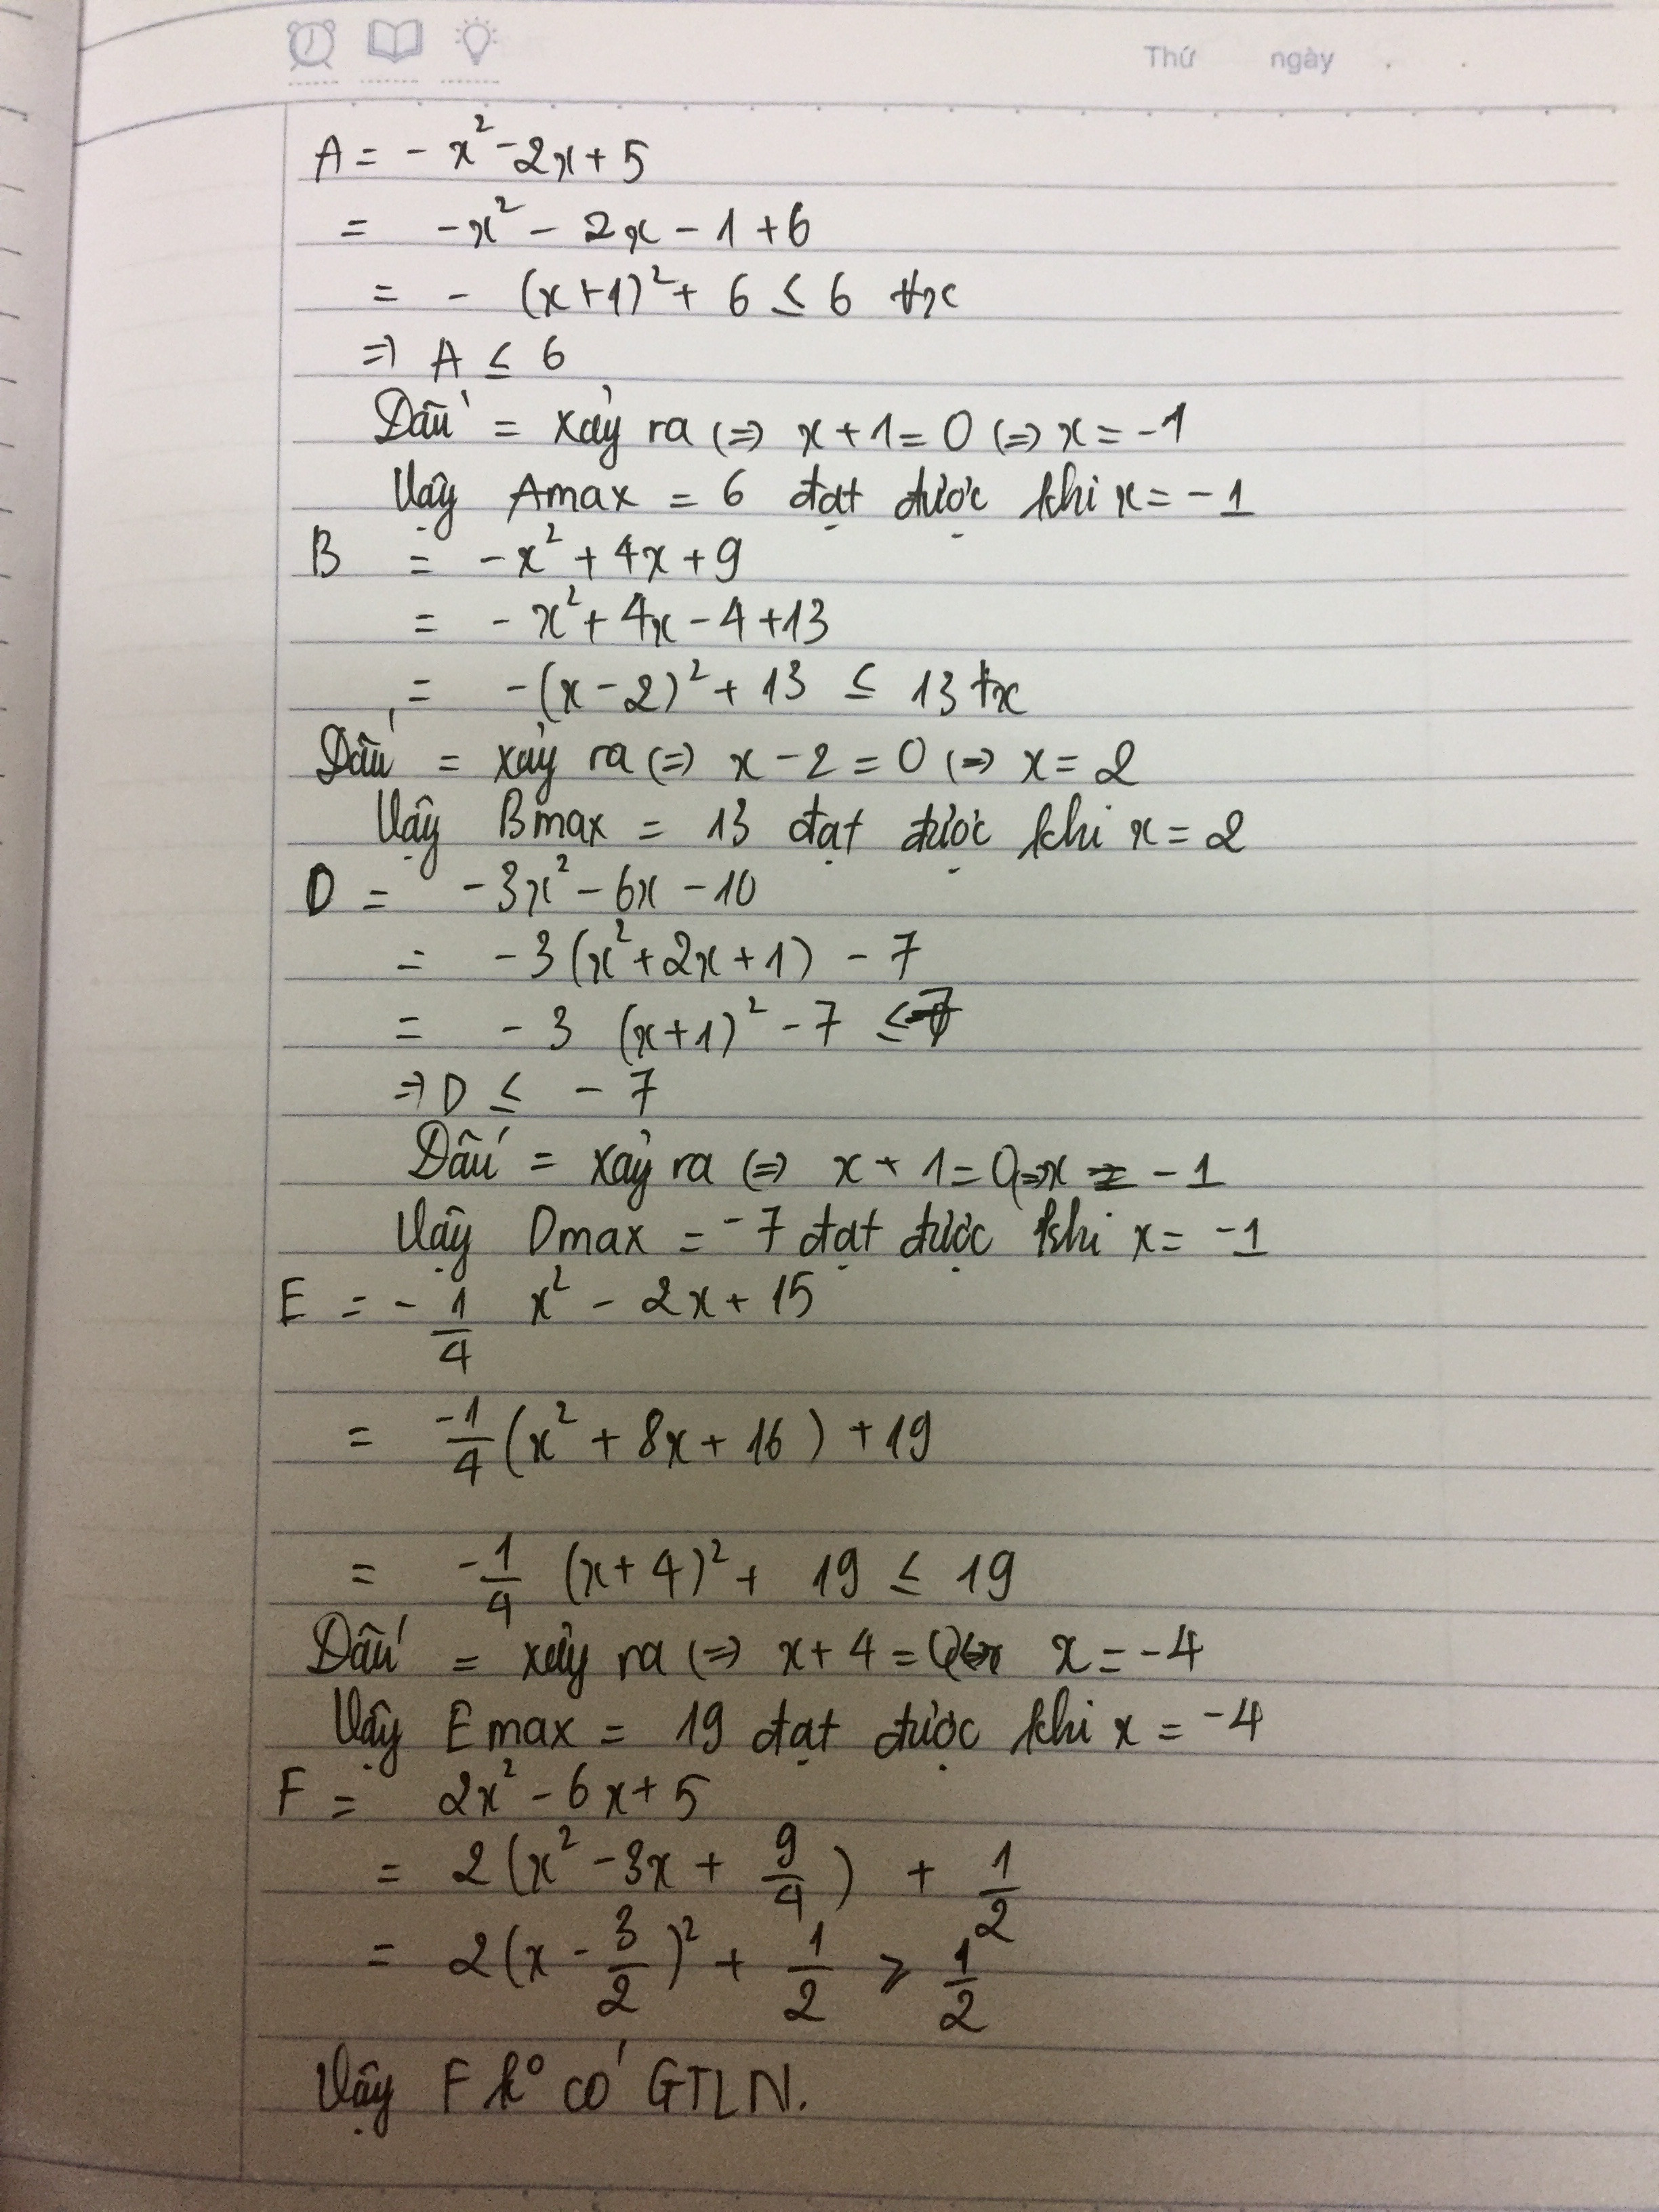 Thứ ngày . .
A = - x² - 2x + 5
= -x² - 2x - 1 + 6
= - (x+1)² + 6 ≤ 6 ∀x
⇒ A ≤ 6
Dấu = xảy ra (=) x + 1 = 0 (=) x = -1
Vậy Amax = 6 đạt được khi x = -1
B = -x² + 4x + 9
= - x² + 4x - 4 + 13
= -(x - 2)² + 13 ≤ 13 ∀x
Dấu = xảy ra (=) x - 2 = 0 (=) x = 2
Vậy Bmax = 13 đạt được khi x = 2
D = -3x² - 6x - 10
= -3 (x² + 2x + 1) - 7
= - 3 (x+1)² - 7 ≤ -7
⇒ D ≤ - 7
Dấu = xảy ra (=) x + 1 = 0 (=) x = -1
Vậy Dmax = -7 đạt được khi x = -1
E = - 1/4 x² - 2x + 15
= -1/4 (x² + 8x + 16) + 19
= -1/4 (x + 4)² + 19 ≤ 19
Dấu = xảy ra (=) x + 4 = 0 (=) x = -4
Vậy E max = 19 đạt được khi x = -4
F = 2x² - 6x + 5
= 2(x² - 3x + 9/4) + 1/2
= 2(x - 3/2)² + 1/2 ⩾ 1/2
Vậy F k° có GTLN.